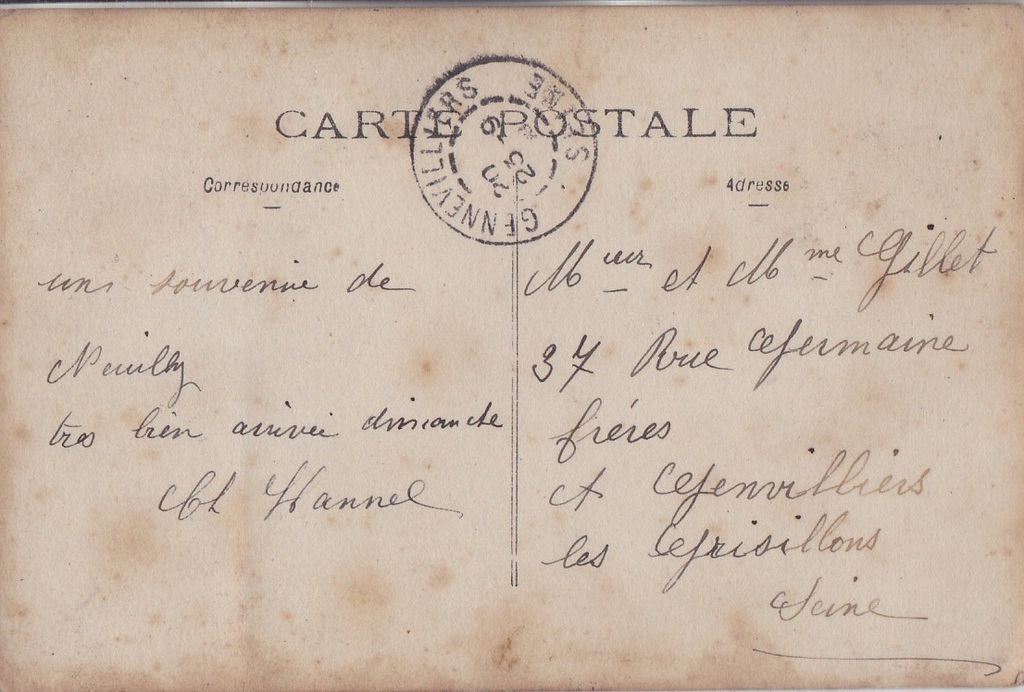 CARTE POSTALE
GENNEVILLIERS
SEINE
Correspondance
Adresse
un souvenir de
Neuilly
tres bien arrivée dimanche
Ch Hannel
Mieur et Mme Gillet
37 Rue Germaine
fréres
A Genvilliers
les Grisillons
Seine